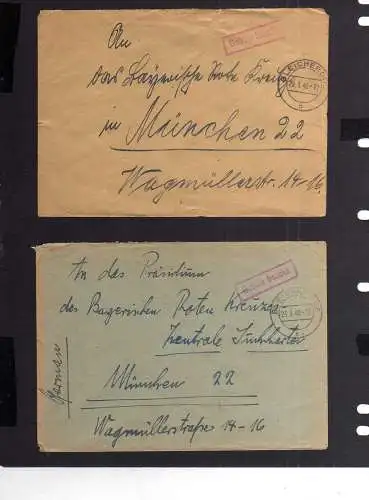 An
das Bayerische Rote Kreuz
in München 22
Wagmüllerstr. 14-16
GLEICHER
An das Präsidium
des Bayerischen Roten Kreuzes
Zentrale Suchkartei
München 22
Wagmüllerstraße 14-16
German
Gebühr bezahlt